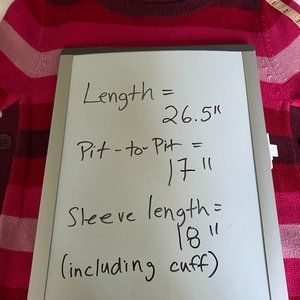 Length =
26.5"
Pit-to-Pit =
17"
Sleeve length =
18"
(including cuff)